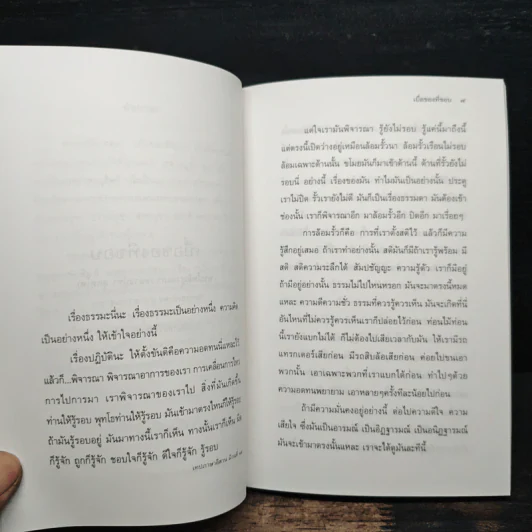 เรื่องธรรมะนี่นะ เรื่องธรรมะเป็นอย่างหนึ่ง ความคิด
เป็นอย่างหนึ่ง ให้เข้าใจอย่างนี้
เรื่องปฏิบัตินะ ให้ตั้งขันติคือความอดทนนี่แหละไว้
แล้วก็...พิจารณา พิจารณาอาการของเรา การเคลื่อนการไหว
การไปการมา เราพิจารณาของเราไป สิ่งที่มันเกิดขึ้น
ท่านให้รู้รอบ พุทโธท่านให้รู้รอบ มันเข้ามาตรงไหนก็ให้รู้รอบ
ถ้ามันรู้รอบอยู่ มันมาทางนี้เราก็เห็น ทางนั้นเราก็เห็น
ก็รู้จัก ถูกก็รู้จัก ชอบใจก็รู้จัก ดีใจก็รู้จัก รู้รอบ
เบื่อของที่ชอบ ๙
แต่ใจเรามันพิจารณา รู้ยังไม่รอบ รู้แค่นี้มาถึงนี้
แต่ตรงนี้เปิดว่างอยู่เหมือนล้อมรั้วนา ล้อมรั้วเรือนไม่รอบ
ล้อมเฉพาะด้านนั้น ขโมยมันก็มาเข้าด้านนี้ ด้านที่รั้วยังไม่
รอบนี่ อย่างนี้ เรื่องของมัน ทำไมมันเป็นอย่างนั้น ประตู
เราไม่ปิด รั้วเรายังไม่ดี มันก็เป็นเรื่องธรรมดา มันต้องเข้า
ช่องนั้น เราก็พิจารณาอีก มาล้อมรั้วอีก ปิดอีก มาเรื่อยๆ
การล้อมรั้วก็คือ การที่เราตั้งสติไว้ แล้วก็มีความ
รู้สึกอยู่เสมอ ถ้าเราทำอย่างนั้น สติมันก็มีถ้าเรารู้พร้อม มี
สติ สติความระลึกได้ สัมปชัญญะ ความรู้ตัว เราก็มีอยู่
ถ้ามีอยู่อย่างนั้น ธรรมไม่ไปไหนหรอก มันจะมาตรงนี้หมด
แหละ ความดีความชั่ว ธรรมที่ควรรู้ควรเห็น มันจะเกิดที่นี่
อันไหนที่ไม่ควรรู้ควรเห็นเราก็ปล่อยไว้ก่อน ท่อนไม้ท่อน
นี้เรายังแบกไม่ได้ ก็ไม่ต้องไปเสียเวลากับมัน ให้เรามีรถ
แทรกเตอร์เสียก่อน มีรถสิบล้อเสียก่อน ค่อยไปขนเอา
พวกนั้น เอาเฉพาะพวกที่เราแบกได้ก่อน ทำไปๆด้วย
ความอดทนพยายาม เอาหลายๆครั้งทีละน้อยไปก่อน
ถ้ามีความมั่นคงอยู่อย่างนี้ ต่อไปความดีใจ ความ
เสียใจ ซึ่งมันเป็นอารมณ์ เป็นอิฏฐารมณ์ เป็นอนิฏฐารมณ์
มันจะเข้ามาตรงนั้นแหละ เราจะได้ดูมันละทีนี้